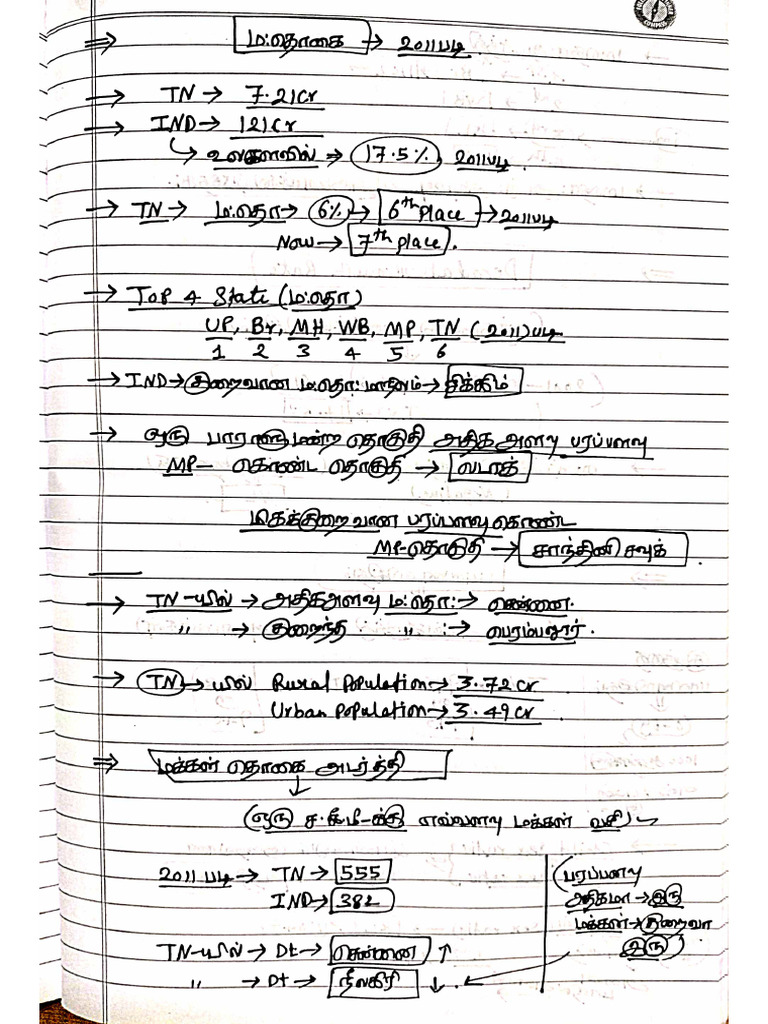 ⇒ ம.தொகை → 2011படி
→ TN → 7.21Cr
→ IND → 121Cr
↳ உலகளவில் → 17.5%, 2011படி.
→ TN → ம.தொ → 6% → 6th place → 2011படி
Now → 7th place.
→ Top 4 State (ம.தொ)
UP, Br, MH, WB, MP, TN (2011) படி
1 2 3 4 5 6
→ IND → குறைவான ம.தொ. மாநிலம் → சிக்கிம்
→ ஒரு பாராளுமன்ற தொகுதி அதிக அளவு பரப்பளவு
MP- கொண்ட தொகுதி → லடாக்
மிகக்குறைவான பரப்பளவு கொண்ட
MP-தொகுதி → சாந்தினி சவுக்
→ TN-யில் → அதிகஅளவு ம.தொ: → சென்னை.
" → குறைந்த " :→ பெரம்பலூர்.
→ TN → யில் Rural Population → 3.72Cr
Urban Population → 3.49Cr
⇒ மக்கள் தொகை அடர்த்தி
↓
ஒரு ச.கி.மீ-க்கு எவ்வளவு மக்கள் வசி
2011படி → TN → 555
IND → 382
TN-யில் → Dt → சென்னை ↑
" → Dt → நீலகிரி ↓.
(பரப்பளவு
அதிகமா → இரு
மக்கள் → குறைவா
இரு)